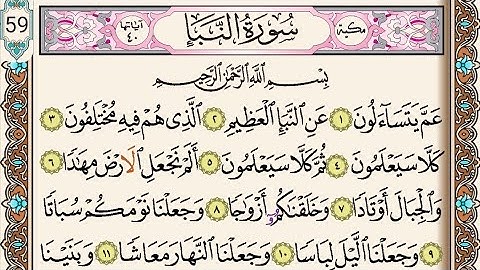 59
آياتها ٤٠ سُورَةُ النَّبَإِ مكية
بِسْمِ اللَّهِ الرَّحْمَٰنِ الرَّحِيمِ
عَمَّ يَتَسَآءَلُونَ ١ عَنِ النَّبَإِ الْعَظِيمِ ٢ الَّذِى هُمْ فِيهِ مُخْتَلِفُونَ ٣
كَلَّا سَيَعْلَمُونَ ٤ ثُمَّ كَلَّا سَيَعْلَمُونَ ٥ أَلَمْ نَجْعَلِ الْأَرْضَ مِهَٰدًا ٦
وَالْجِبَالَ أَوْتَادًا ٧ وَخَلَقْنَٰكُمْ أَزْوَٰجًا ٨ وَجَعَلْنَا نَوْمَكُمْ سُبَاتًا
٩ وَجَعَلْنَا الَّيْلَ لِبَاسًا ١٠ وَجَعَلْنَا النَّهَارَ مَعَاشًا ١١ وَبَنَيْنَا